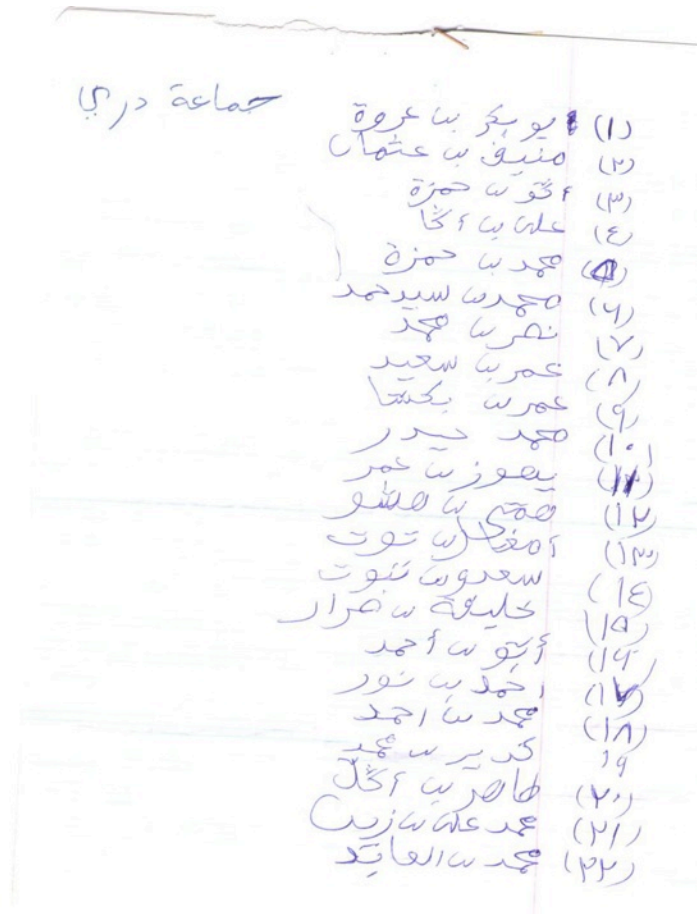 جماعة دري
(١) يوبكر بن عروة
(٢) منيف بن عثمان
(٣) أڭو بن حمزة
(٤) على بن أڭا
(٥) محمد بن حمزة
(٦) محمد بن سيدحمد
(٧) نصر بن محمد
(٨) عمر بن سعيد
(٩) عمر بن بكشا
(١٠) محمد حيدر
(١١) يعوز بن عمر
(١٢) بن هشو
(١٣) بن توت
(١٤) سعدو بن تنبوت
(١٥) خليفة بن ضرار
(١٦) أبڭو بن أحمد
(١٧) احمد بن نور
(١٨) محمد بن احمد
١٩ كدير بن محمد
(٢٠) طاهر بن أڭل
(٢١) محمد على بن زين
(٢٢) محمد بن العابد